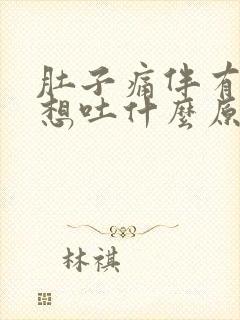 肚子痛伴有
想吐什麼原
林祺